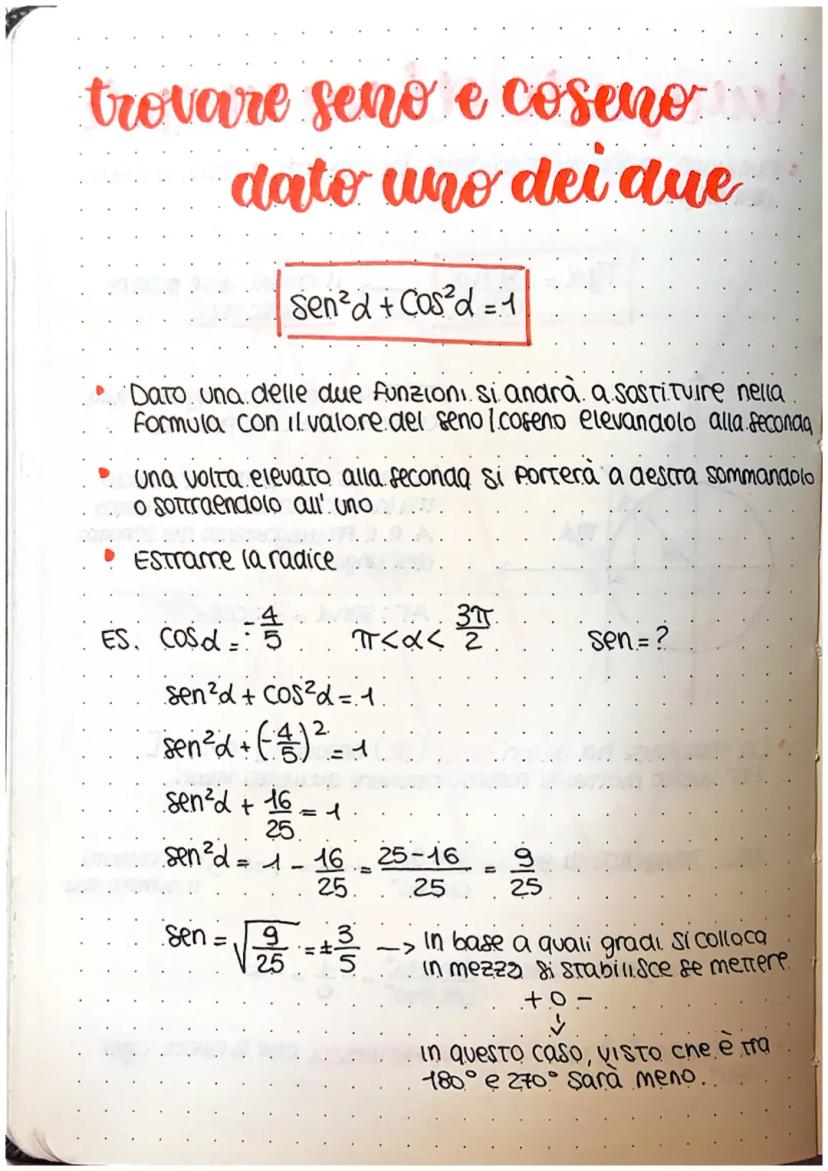 trovare seno e coseno
dato uno dei due
sen²α + cos²α = 1
• Dato una delle due funzioni si andrà a sostituire nella
formula con il valore del seno/coseno elevandolo alla seconda
• una volta elevato alla seconda si porterà a destra sommandolo
o sottraendolo all' uno
• Estrarre la radice
ES. cosα = -4/5 π<α< 3π/2 sen = ?
sen²α + cos²α = 1
sen²α + (-4/5)² = 1
sen²α + 16/25 = 1
sen²α = 1 - 16/25 = 25-16/25 = 9/25
sen = √9/25 = ±3/5 --> in base a quali gradi si colloca
in mezzo si stabilisce se mettere
+ o -
↓
in questo caso, visto che è tra
180° e 270° sarà meno.